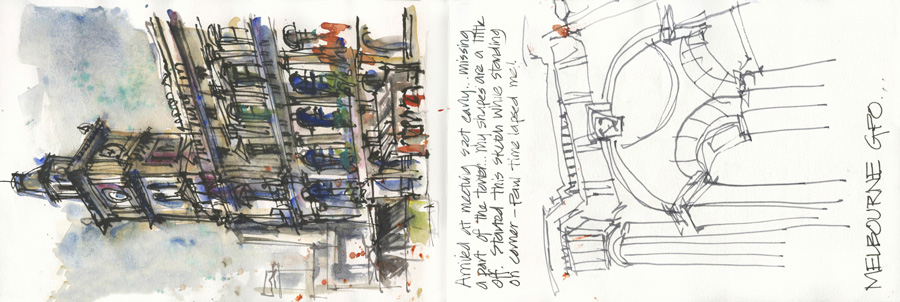 Arrived at meeting spot early... missing
a part of the tower... My shapes are a little
off. Started this sketch while standing
on corner - Paul time lapsed me!
MELBOURNE GPO...